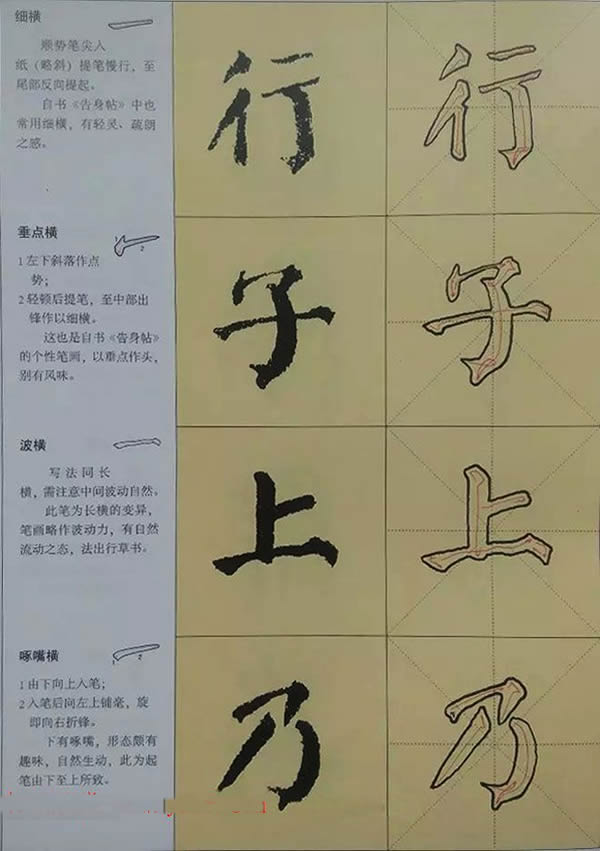 细横
顺势笔尖入
纸（略斜）提笔慢行，至
尾部反向提起。
自书《告身帖》中也
常用细横，有轻灵、疏朗
之感。
行 行
垂点横
1 2
1 左下斜落作点
势；
2 轻顿后提笔，至中部出
锋作以细横。
这也是自书《告身帖》
的个性笔画，以垂点作头，
别有风味。
子 子
波横
写法同长
横，需注意中间波动自然。
此笔为长横的变异，
笔画略作波动力，有自然
流动之态，法出行草书。
上 上
啄嘴横
1 2
1 由下向上入笔；
2 入笔后向左上铺毫，旋
即向右折锋。
下有啄嘴，形态颇有
趣味，自然生动，此为起
笔由下至上所致。
乃 乃